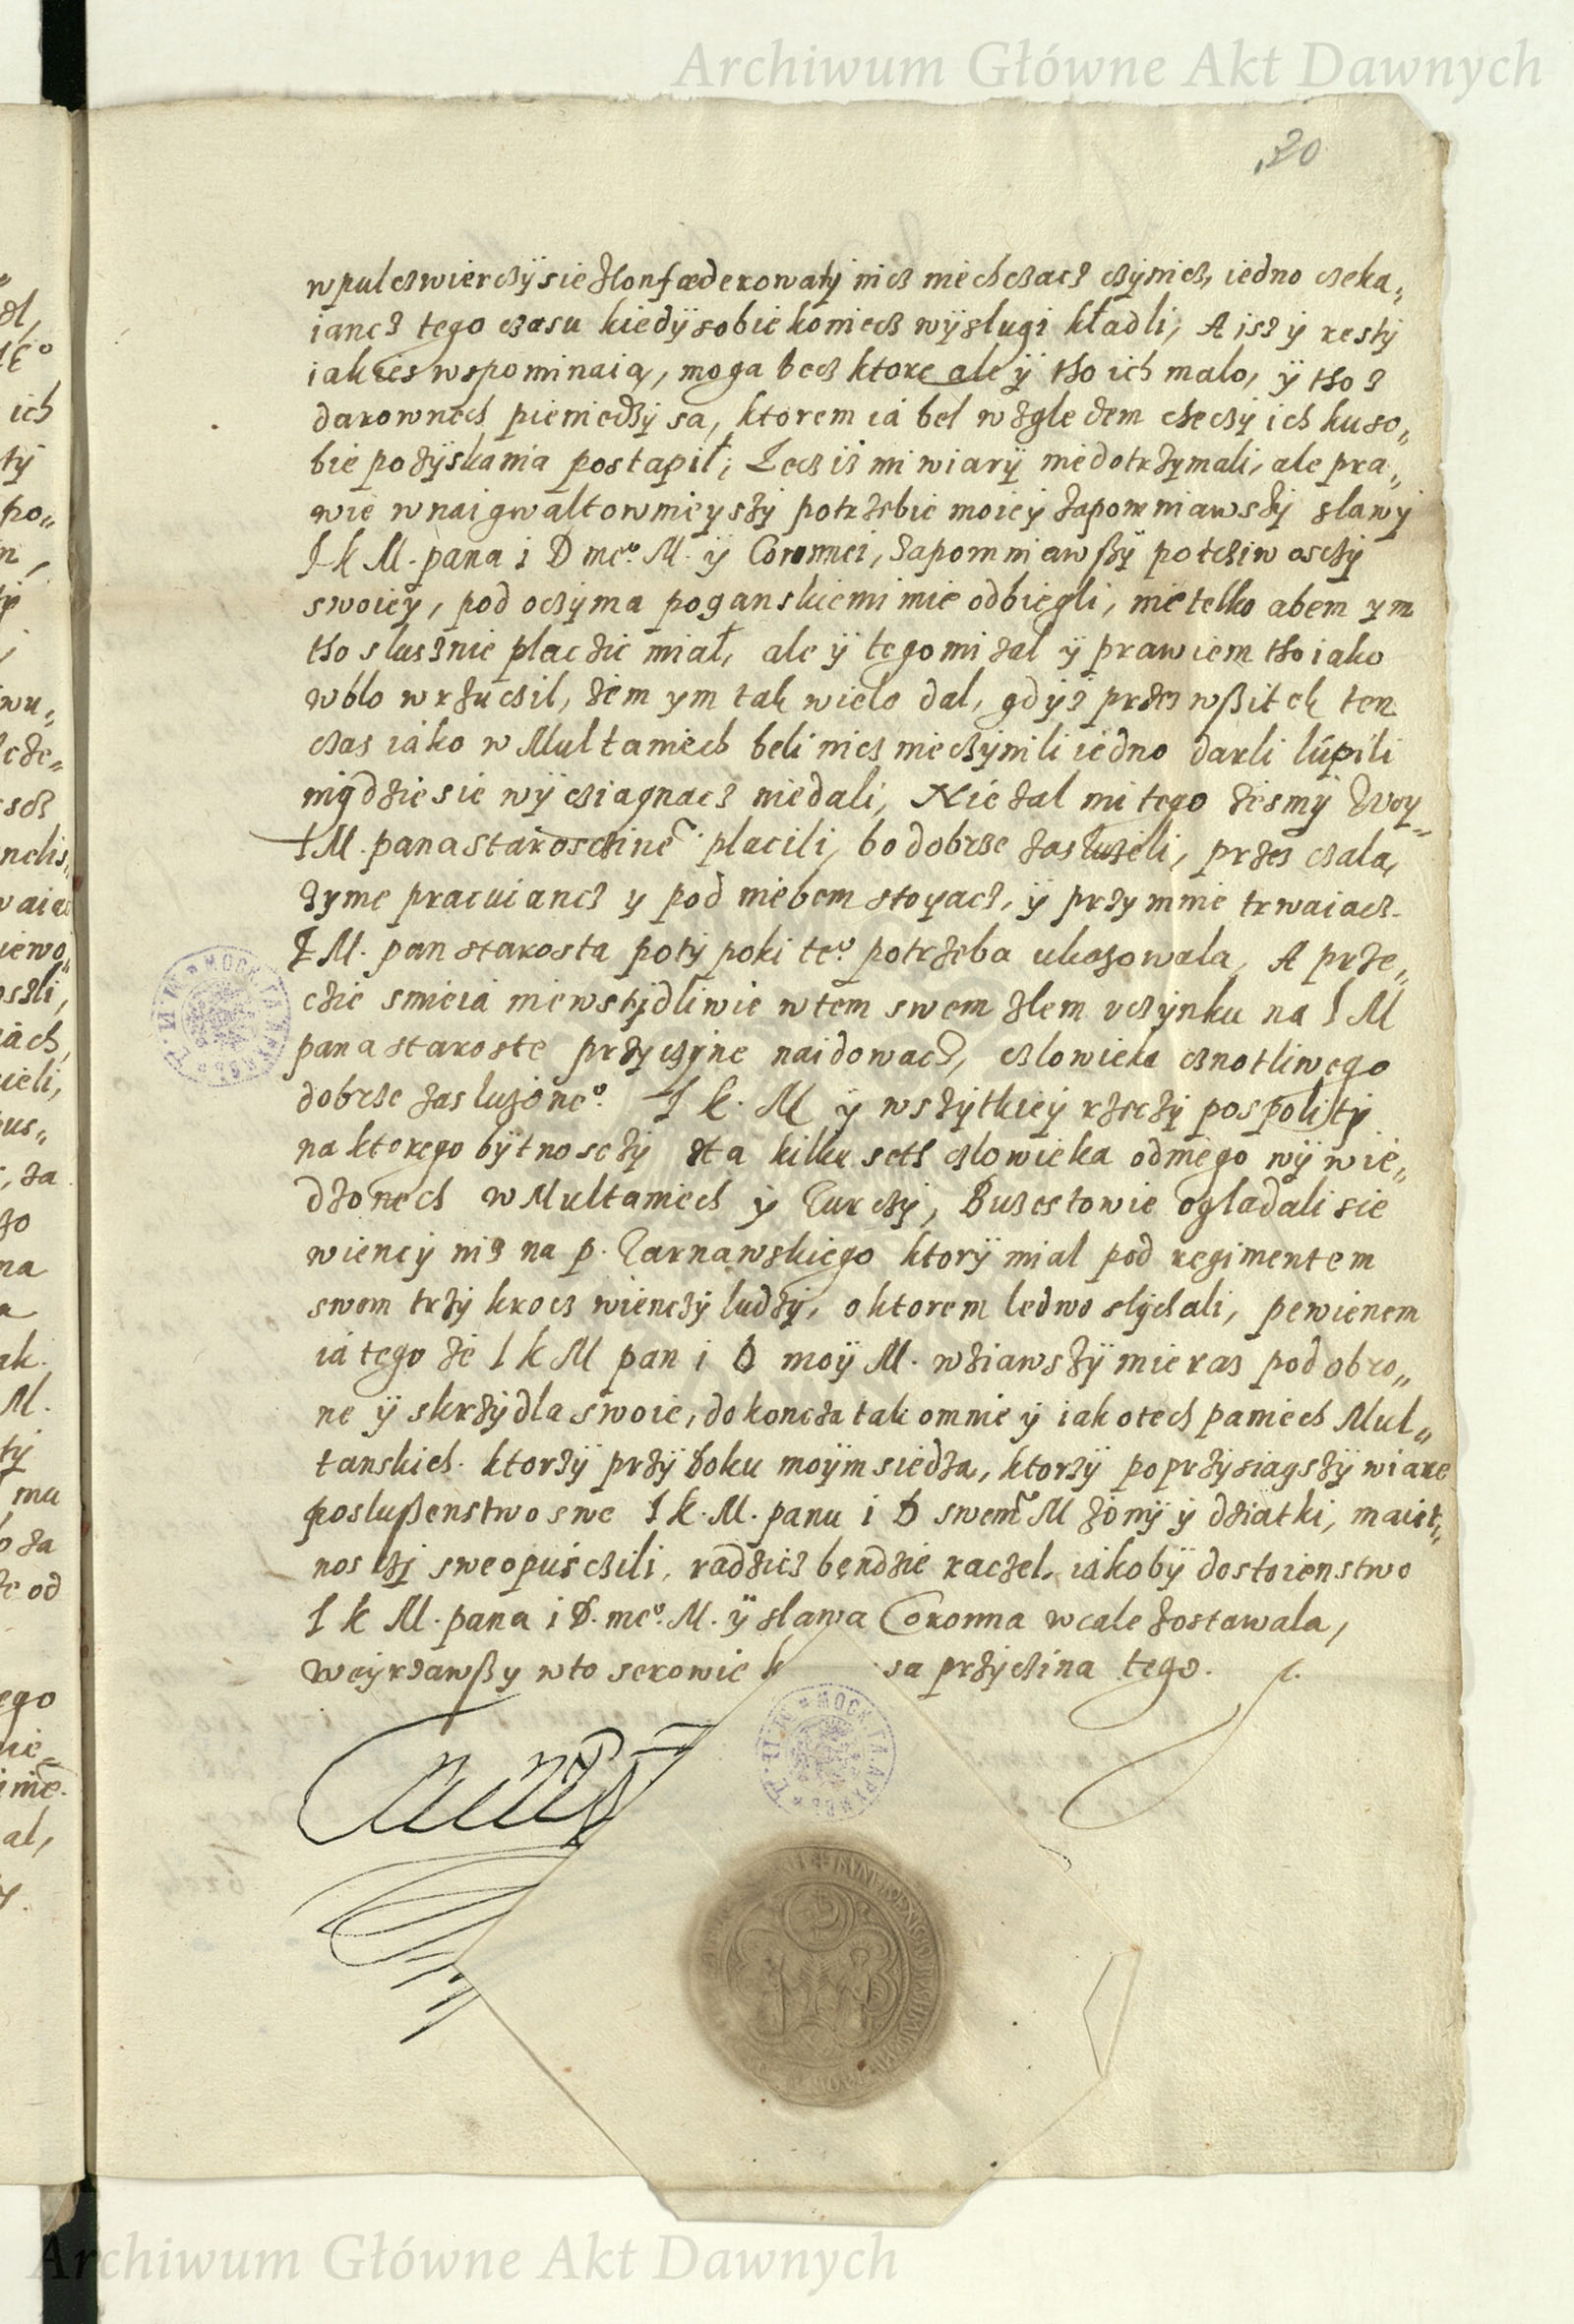 Archiwum Główne Akt Dawnych
20
wpulczwierczÿ sie zkonfœderowatÿ nicz niechczacz czÿnicz, iedno czeka„
iancz tego czasu kiedÿ sobie koniecz wÿslugi kładli, A isz ÿ restÿ
iakies wspominaią, moga becz ktore ale ÿ tho ich malo, ÿ tho z
darownech pieniedzÿ sa, ktorem iá bel wzgledem checzÿ ich kuso„
bie pozÿskania postapił; Lecz iz mi wiarÿ niedotrzÿmali, ale pra„
wie wnaigwaltownieyszÿ potrzebie moieÿ zapomniawszÿ slawÿ
I k M. pana i D meº. M. ÿ Coronnei, zapomniawßÿ potcziwosczÿ
swoieÿ, pod oczÿma poganskiemi mie odbiegli, nie telko abem ym
tho slusznie placzic miał, ale ÿ tego mi zal ÿ prawiem tho iako
wblo wrzuczil, zem ym tak wielo dal, gdÿz przes wßitek ten
czas iako w Multaniech beli nicz nieczÿnili iedno darli lúpili
nigdzie sie wÿcziagnacz niedali, Nie zal mi tego zesmÿ Woy„
I M. pana staroscziné placili, bo dobrze zasluzeli, przes czala,
zyme pracuiancz y pod niebem stoyacz, ÿ przy mnie trwaiacz.
I M. pan starosta potÿ poki teº potrzeba ukazowala, A prze„
czie smieia niewstÿdliwie wtem swem zlem uczÿnku na I M
pana staroste przÿczÿne naidowacz, czlowieka cznotliwego
dobrze zasluzoneº. I k. M ÿ wszÿtkieÿ rzeczÿ pospolitÿ
na ktorego bÿtnosczÿ zta kilku seth czlowieka odniego wÿwie„
dzonech w Multaniech ÿ Turczÿ, Buzestowie ogladali sie
wiencÿ niz na p. Tarnawskiego ktorÿ mial pod regimentem
swem trzÿ krocz wienczÿ ludzÿ, o ktorem ledwo slÿchali, pewienem
iá tego ze I k M pan i D moÿ M. wziawszÿ mie raz pod obro„
ne ÿ skrzÿdla swoie, do koncza tak o mnie ÿ iak otech paniech Mul„
tanskich. ktorzÿ przÿ boku moÿm siedza, ktorzÿ poprzÿsiagszÿ wiare
poslußenstwo swe I k. M. panu i D swemu M zonÿ ÿ dziatki, maięt„
nosczÿ swe opusczili, radzicz bęndzie raczel, iakobÿ dostoienstwo
I k M. pana i D. meº. M. ÿ slawa Coronna wcale zostawala,
Weÿrzawßy wto serowie sa przÿczina tego.
Archiwum Główne Akt Dawnych